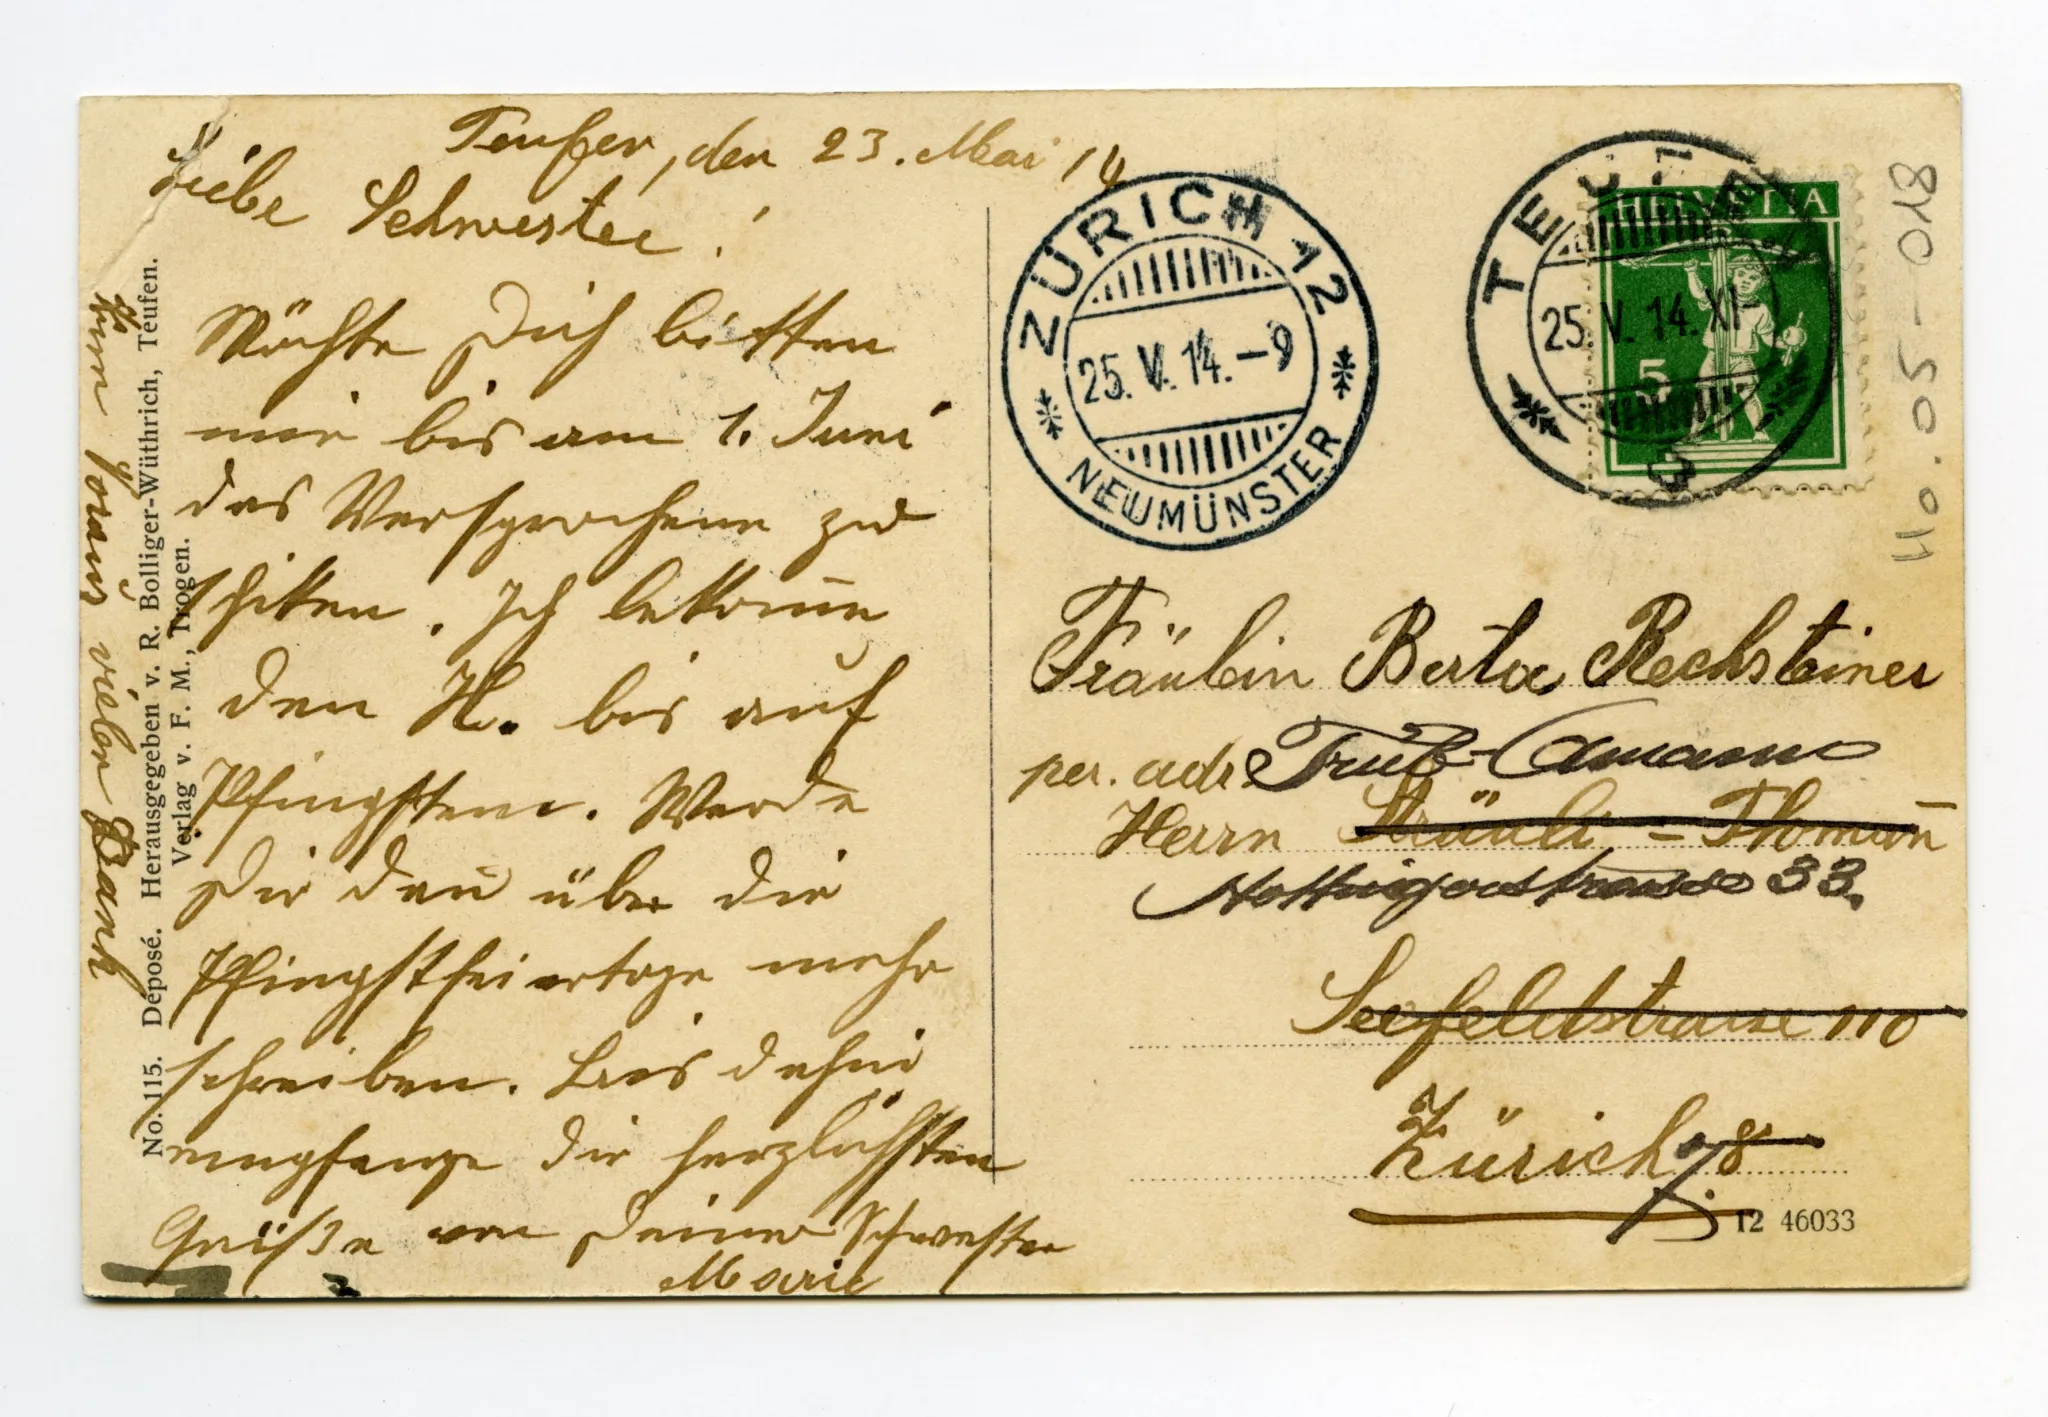 Teufen, den 23. Mai 14
Liebe Schwester!
Möchte Dich bitten
mir bis am 1. Juni
das Versprochene zu
schiken. Ich bekom̄e
den H. bis auf
Pfingsten. Werde
Dir dan̄ über die
Pfingstfeiertage mehr
schreiben. Bis dahin
empfange die herzlichsten
Grüße von Deiner Schwester
Marie
Zum Voraus vielen Dank
No. 115. Deposé. Herausgegeben v. R. Bolliger-Wüthrich, Teufen.
Verlag v. F. M., Trogen.
ZÜRICH 12
25. V. 14. – 9
NEUMÜNSTER
HELVETIA
5
25. V. 14. XI –
Fräulein Berta Rechsteiner
per. adr. Trüb-Amann
Herrn Sträuli – Thoman̄
Hottingerstrasse 33.
Seefeldstrasse 110
Zürich 8
7.
12 46033
HO.05-018